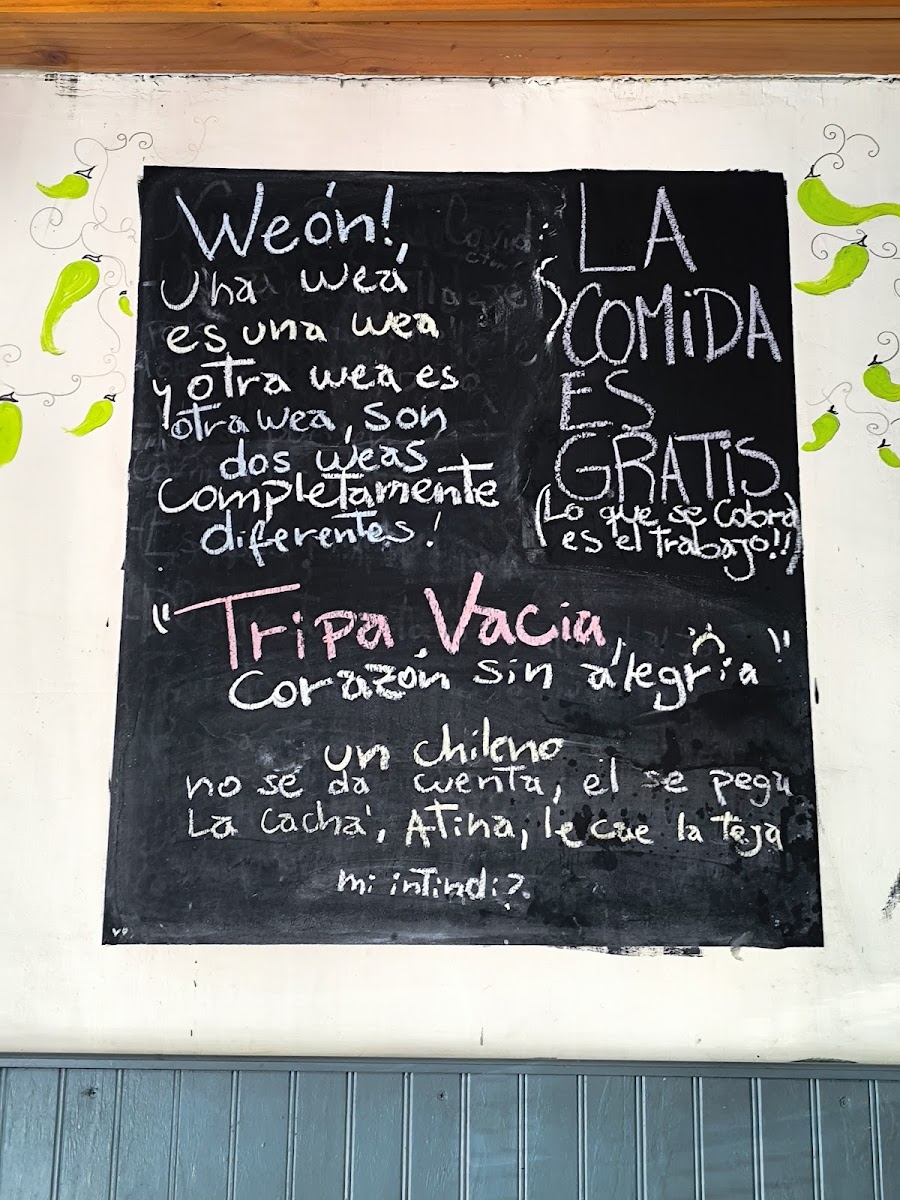 Weón!,
Una wea
es una wea
y otra wea es
otra wea, son
dos weas
completamente
diferentes!
LA
COMiDA
ES
GRATiS
(Lo que se cobra
es el trabajo!!)
"Tripa Vacia,
Corazón sin alegria"
un chileno
no se da cuenta, el se pega
La cachá, Atina, le cae la teja
mi intindi?